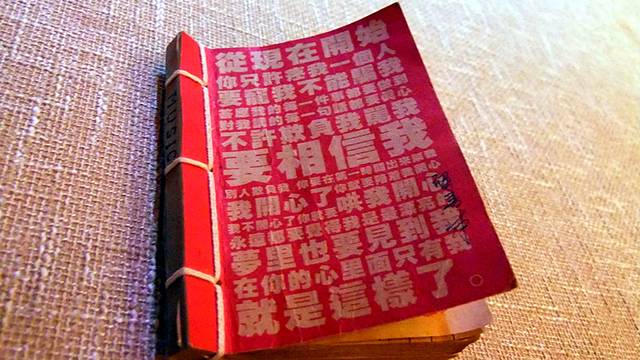 MUSIC
從現在開始
你只許疼我一個人
要寵我不能騙我
答應我的每一件事都要做到
對我講的每一句話都要真心
不許欺負我罵我
要相信我
別人欺負我 你要在第一時間出來幫我
我開心了你就要陪著我開心
我不開心了你就要哄我開心
永遠都要覺得我是最漂亮
夢里也要見到我
在你的心里面只有我
就是這樣了